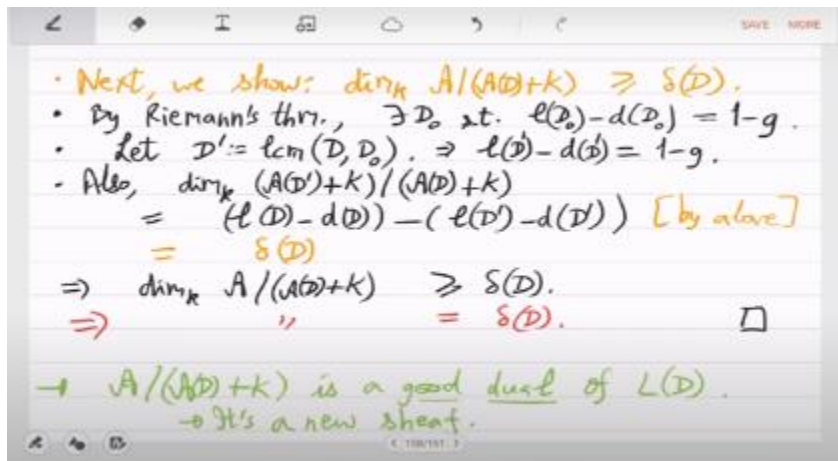 SAVE MORE
• Next, we show: dim_k A/(A(D)+K) ≥ δ(D).
• By Riemann's thm., ∃D₀ st. ℓ(D₀)-d(D₀) = 1-g.
• Let D' := lcm(D, D₀). ⇒ ℓ(D')-d(D') = 1-g.
- Also, dim_k (A(D')+K)/(A(D)+K)
= (ℓ(D)-d(D))-(ℓ(D')-d(D')) [by above]
= δ(D)
⇒ dim_k A/(A(D)+K) ≥ δ(D).
⇒ " = δ(D). □
→ A/(A(D)+K) is a good dual of L(D).
→ It's a new sheaf.